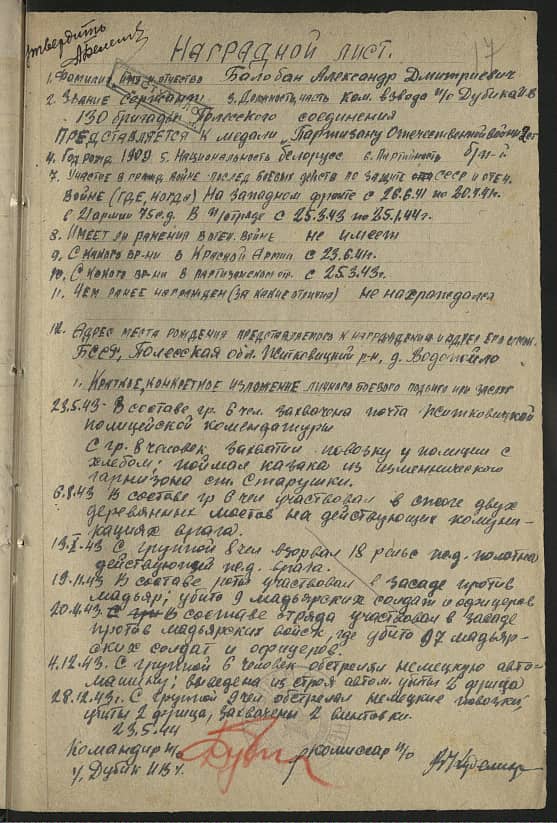 Утвердить
17
Наградной лист.
1. Фамилия имя и отчество Балобан Александр Дмитриевич
2. Звание сержант 3. Должность, часть ком. взвода п/о Дубика И.В
130 бригады Полесского соединения
Представляется к медали „Партизану Отечественной войны" 2 ст
4. Год рожд 1909 5. Национальность белорусс 6. Партийность б/п-й
7. Участие в гражд. войне послед боевых действ по защите СССР и отеч.
войне (где, когда) На Западном фронте с 26.6.41 по 20.9.41г.
в 21 армии 75 с.д. В п/отряде с 25.3.43 по 25.1.44г.
8. Имеет ли ранения в отеч. войне не имеет
9. С какого вр-ни в Красной Армии с 23.6.41г.
10. С какого вр-ни в партизанском от. с 25.3.43г.
11. Чем ранее награжден (за какие отличия) не награждался
12. Адрес места рождения представляемого к награждению и адрес его семьи.
БССР, Полесская обл. Житковицкий р-н, д. Водопойло
1. Краткое, конкретное изложение личного боевого подвига или заслуг
23.5.43- В составе гр. 6 чел. захвачена почта Житковичской
полицейской комендатуры
С гр. 8 человек захватил повозку у полиции с
хлебом; поймал казака из изменнического
гарнизона ст. Старушки.
6.8.43 В составе гр 6 чел участвовал в сжоге двух
деревянных мостов на действующих комуни-
кациях врага.
13.X.43 С группой 8 чел взорвал 18 рельс ж.д. полотна
действующей ж.д. врага.
19.11.43 В составе роты участвовал в засаде против
мадьяр; убито 9 мадьярских солдат и офицеров
20.11.43. В составе отряда участвовал в засаде
против мадьярских войск, где убито 97 мадьяр-
ских солдат и офицеров.
4.12.43. С группой 6 человек обстреляли немецкую авто-
машину; выведена из строя автом. убиты 2 фрица
28.12.43г. С группой 9 чел обстрелял немецкие повозки,
убиты 2 фрица, захвачены 2 винтовки.
23.5.44
Командир п/о Комиссар п/о
Дубик И.В.